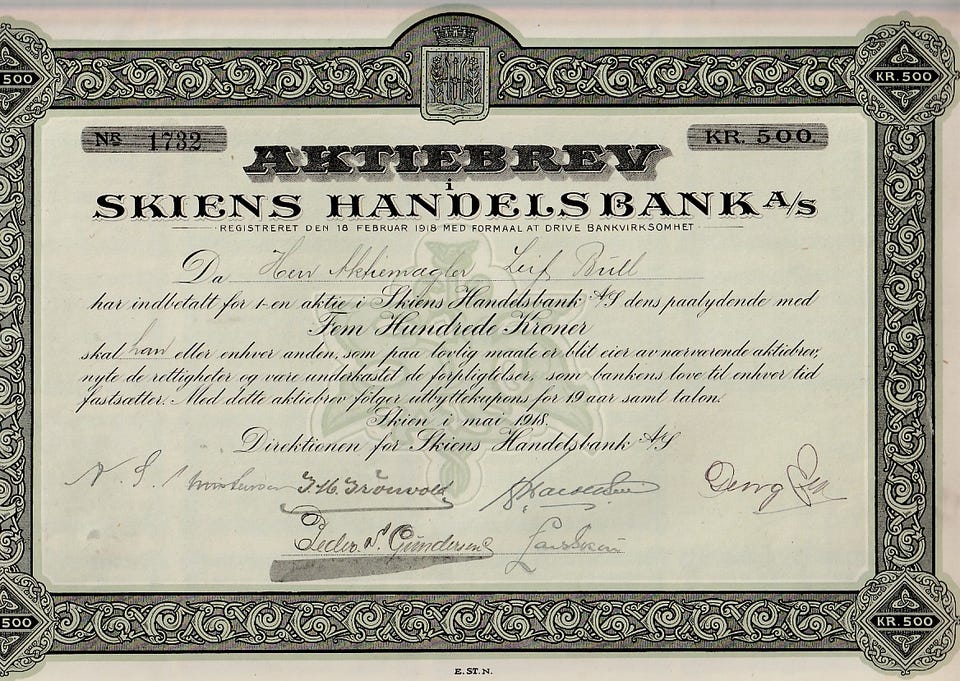 500
KR. 500
NR 1732
KR. 500.
AKTIEBREV
i
SKIENS HANDELSBANK A/S
REGISTRERET DEN 18 FEBRUAR 1918 MED FORMAAL AT DRIVE BANKVIRKSOMHET
Da Herr Aktiemægler Leif Bull
har indbetalt for 1-en aktie i Skiens Handelsbank A/S dens paalydende med
Fem Hundrede Kroner
skal han eller enhver anden, som paa lovlig maate er blit eier av nærværende aktiebrev,
nyte de rettigheter og være underkastet de forpligtelser, som bankens love til enhver tid
fastsætter. Med dette aktiebrev følger utbyttekupons for 19 aar samt talon.
Skien i mai 1918.
Direktionen for Skiens Handelsbank A/S
N. S.
Peder N. Gundersen
500
KR. 500
E. ST. N.